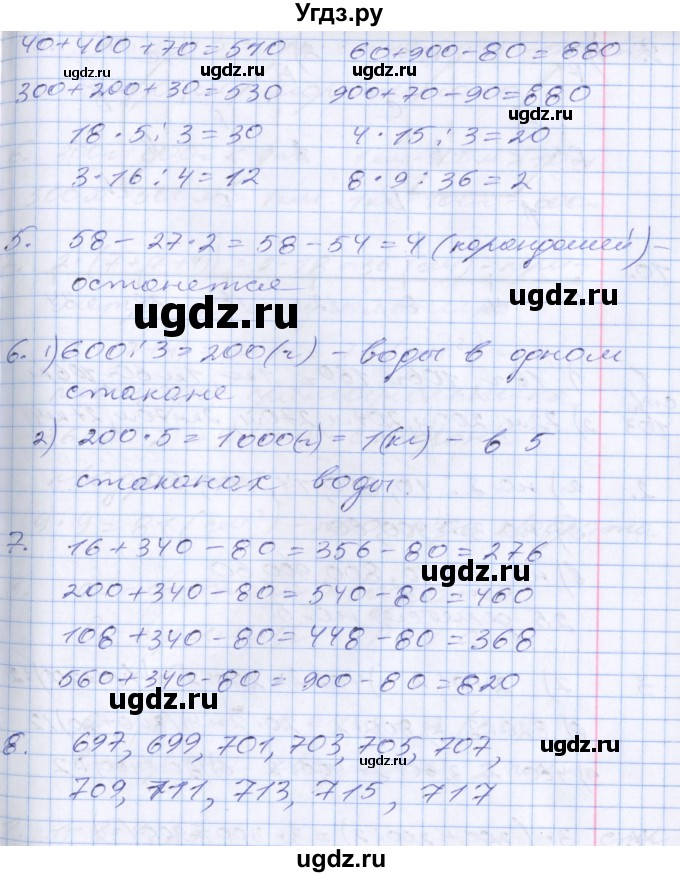 Угдз.ру
40+400+70=510 60+900-80=880
ugdz.ru ugdz.ru
300+200+30=530 900+70-90=880
ugdz.ru ugdz.ru
18·5:3=30 4·15:3=20
3·16:4=12 8·9:36=2
5. 58-27·2=58-54=4 (карандашей)-
останется
ugdz.ru ugdz.ru
6. 1) 600:3=200(г) - воды в одном
стакане
ugdz.ru
2) 200·5=1000(г)=1(кг) - в 5
стаканах воды.
7. 16+340-80=356-80=276
ugdz.ru
200+340-80=540-80=460
108+340-80=448-80=368
560+340-80=900-80=820
ugdz.ru
8. 697, 699, 701, 703, 705, 707,
ugdz.ru ugdz.ru
709, 711, 713, 715, 717
ugdz.ru